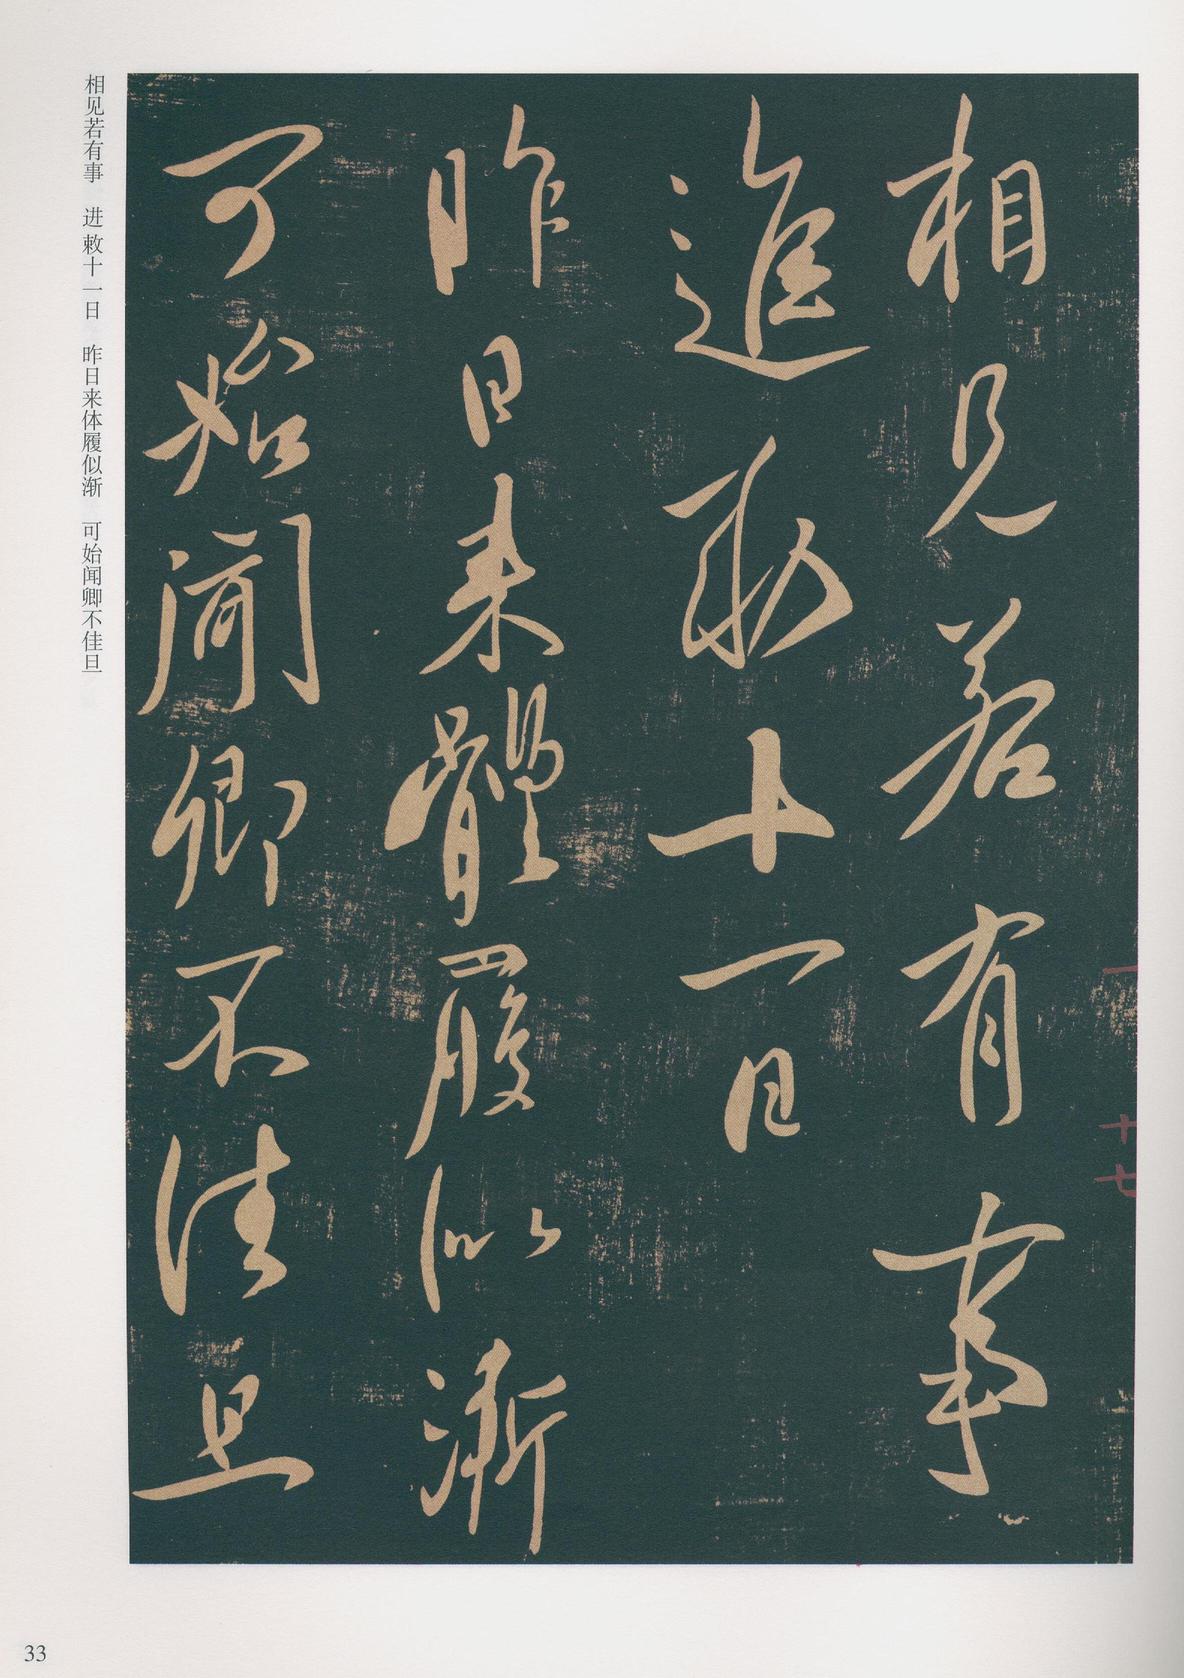 相見若有事
進敕十一日
昨日来體履似漸
可始聞卿不佳旦
一
十七
相见若有事　进敕十一日　昨日来体履似渐　可始闻卿不佳旦
33